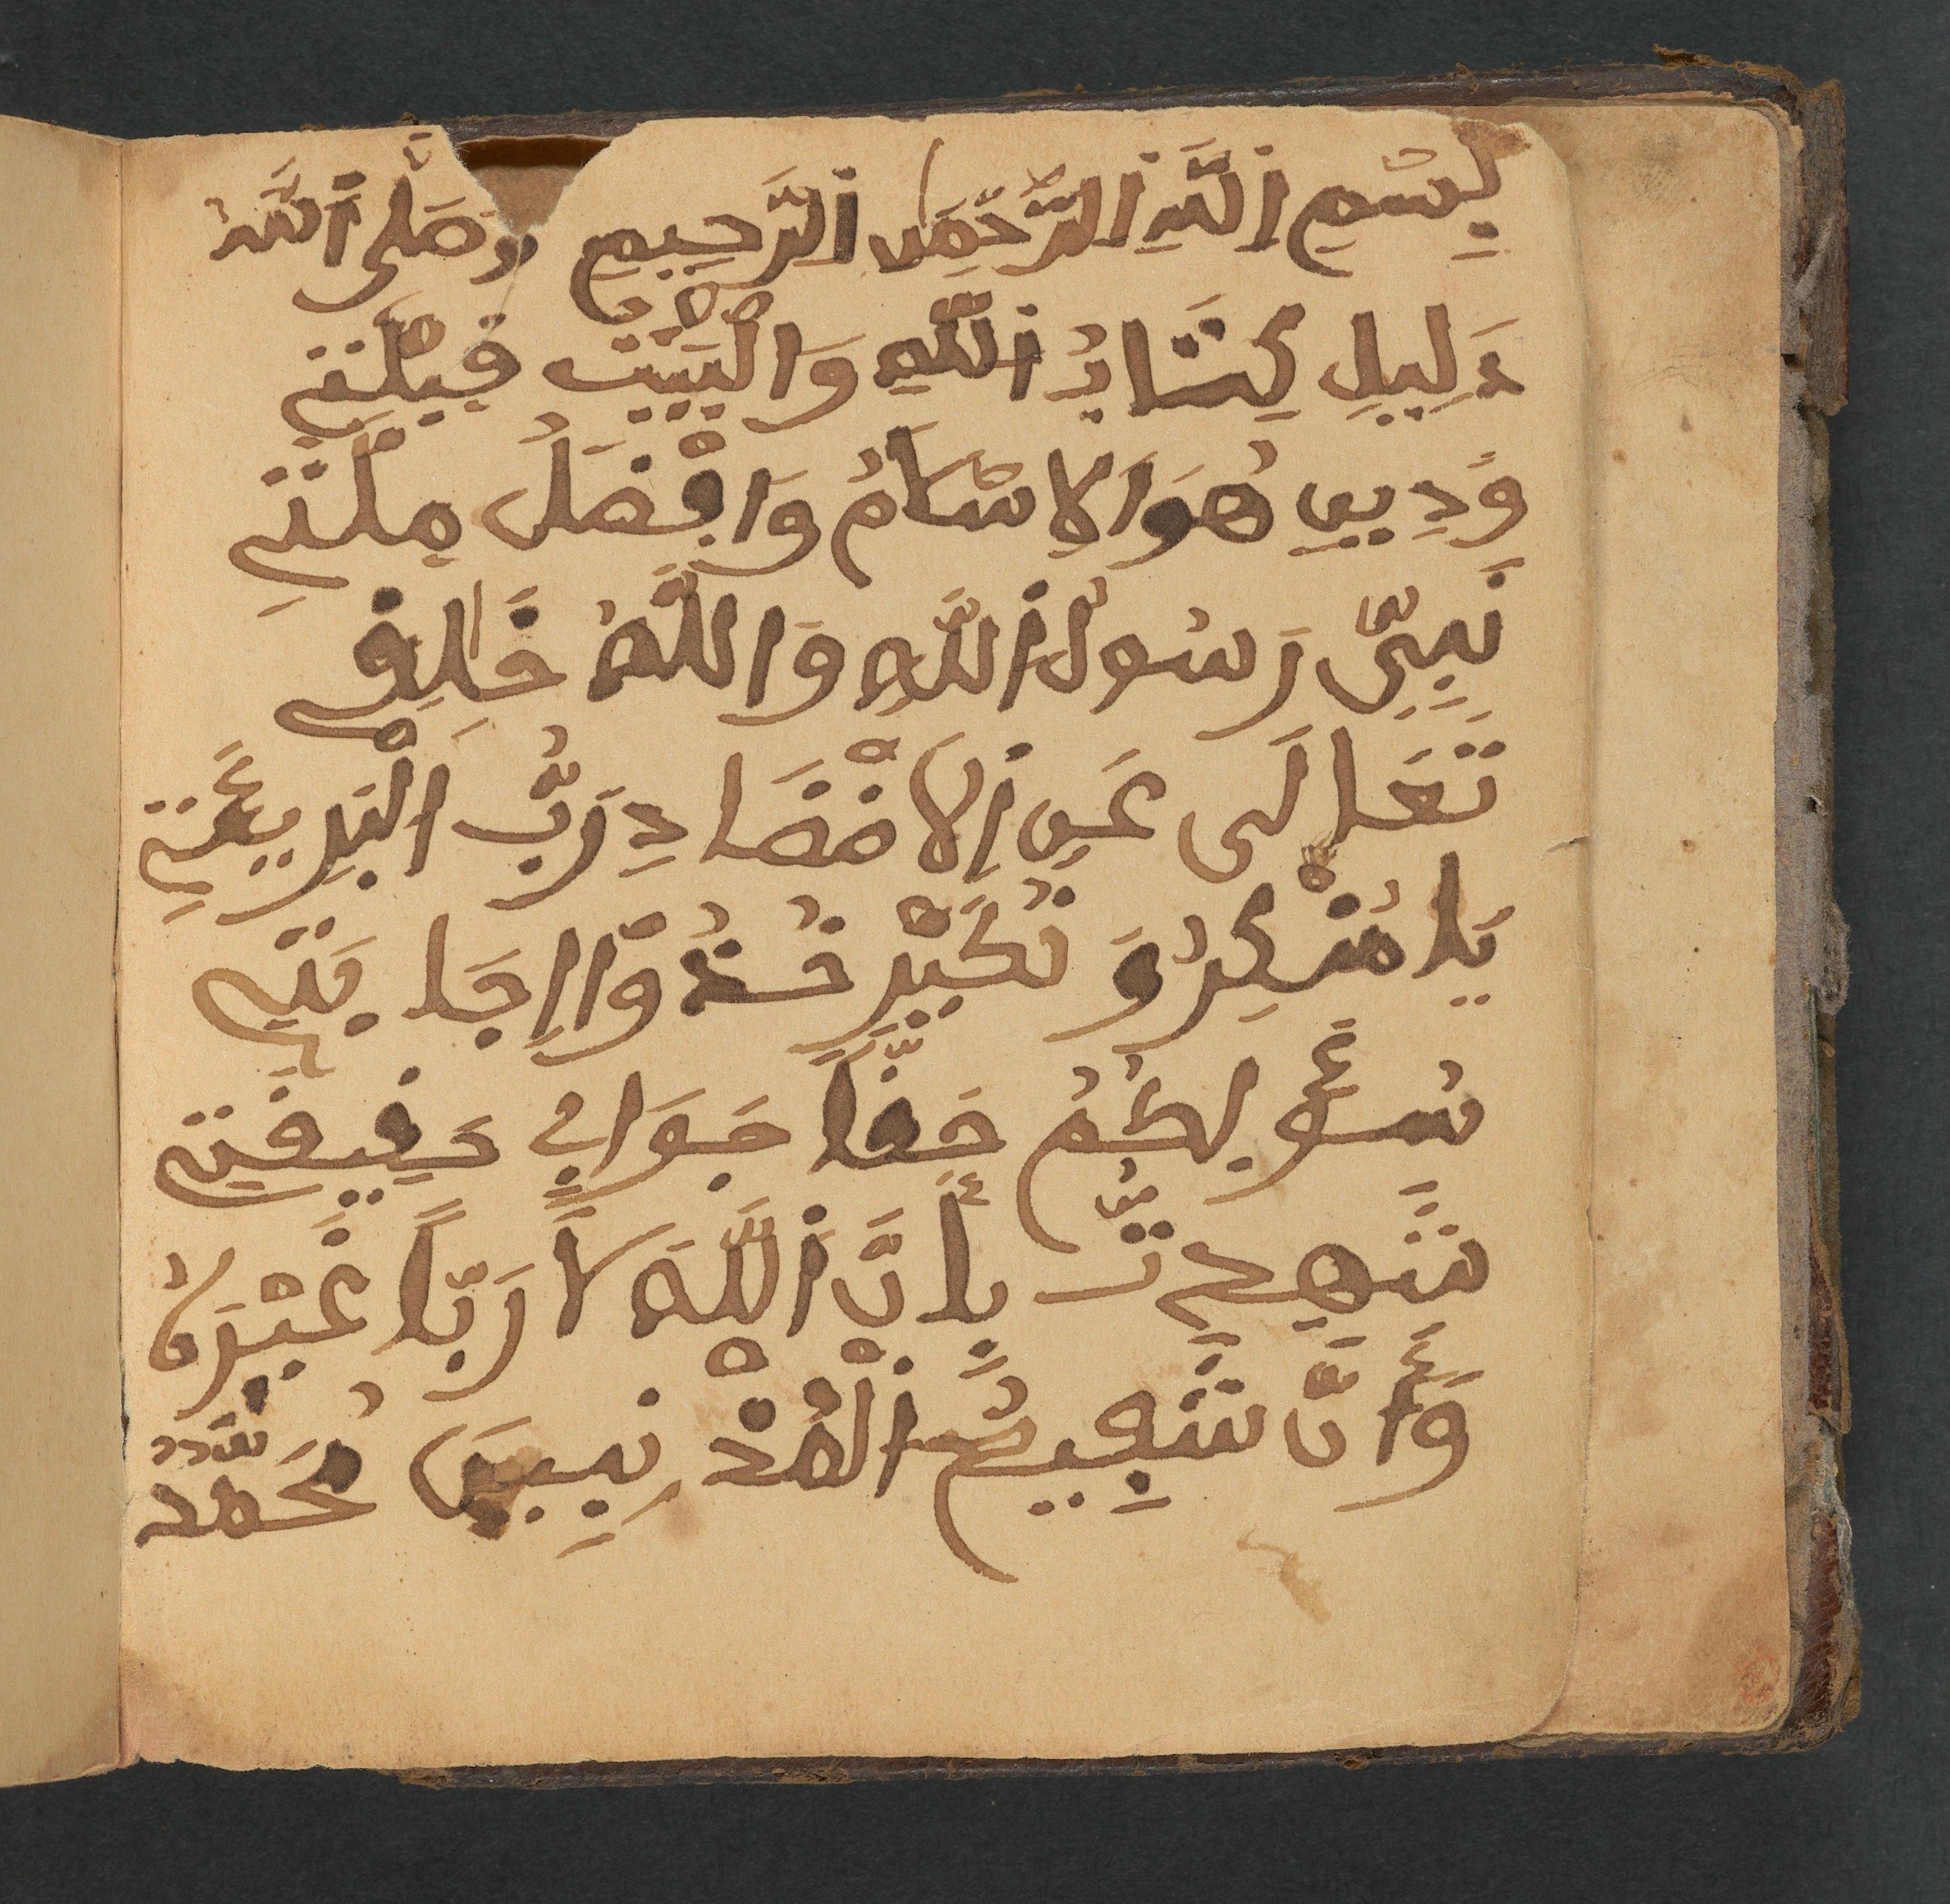 بِسْمِ اِ۬للَّهِ اِ۬لرَّحْمَٰنِ اِ۬لرَّحِيمِ وَصَلَّى اَ۬للَّهُ
دَلِيلِ كِتَابُ اُ۬للَّهِ وَالْبَيْتُ قِبْلَتِي
وَدِينِي هُوَ الِاسْلَامُ وَافْضَلُ مِلَّتِي
نَبِيِّي رَسُولُ اُ۬للَّهِ وَاللَّهُ خَالِقِي
تَعَالَى عَنِ اِ۬لَاضْضَادِ رَبُّ الْبَرِيئَتِي
يَا مُنْكِرُ وَ نُكَيْرِ خُذُوا اِجَابَتِي
سُؤَلِكُمْ حَقّاً جَوَابٍ حَقِيقَتِي
شَهِدتُّ بِأَنَّ اَ۬للَّهَ لَا رَبّاً غَيْرَهُ
وَأَنَّ شَفِيعُ اُ۬لْمُذْنِبِينَ مُحَمَّدٌ